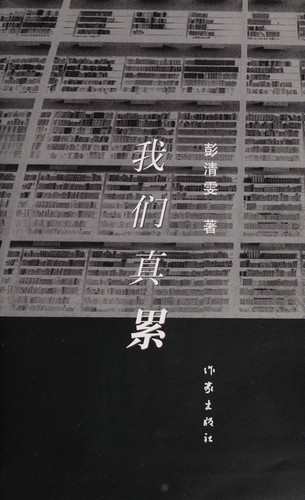 我们真累
彭清雯 著
作家出版社